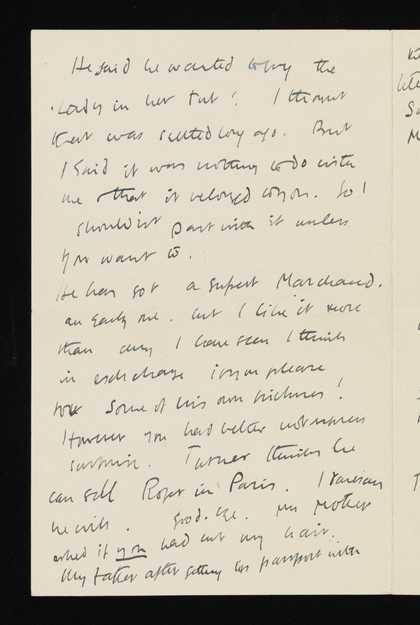 He said he wanted to buy the
'Lady in her Tub'. I thought
that was settled long ago. But
I said it was nothing to do with
me & that it belonged to you. So I
shouldn't part with it unless
you want to.
He has got a superb Marchand.
an early one. but I like it more
than any I have seen I think
in exchange if you please
for some of his own pictures!
However you had better not express
surprise. Turner thinks he
can sell Roger in Paris. I
he will. Good-bye. My Mother
asked if you had cut my hair.
My father after getting his passport with